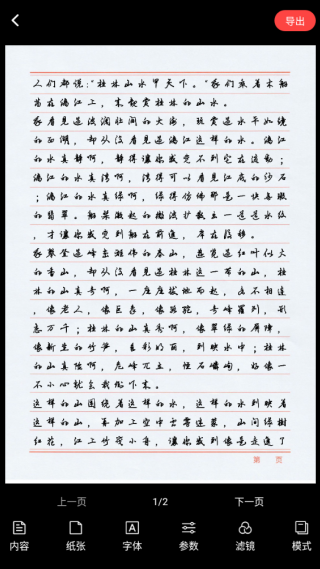 导出
人们都说："桂林山水甲天下。"我们乘着木船
荡在漓江上，来观赏桂林的山水。
我看见过波澜壮阔的大海，玩赏过水平如镜
的西湖，却从没看见过漓江这样的水。漓江
的水真静啊，静得让你感觉不到它在流动；
漓江的水真清啊，清得可以看见江底的沙石
；漓江的水真绿啊，绿得仿佛那是一块无瑕
的翡翠。船桨激起的微波扩散出一道道水纹
，才让你感觉到船在前进，岸在后移。
我攀登过峰峦雄伟的泰山，游览过红叶似火
的香山，却从没看见过桂林这一带的山，桂
林的山真奇啊，一座座拔地而起，各不相连
，像老人，像巨象，像骆驼，奇峰罗列，形
态万千；桂林的山真秀啊，像翠绿的屏障，
像新生的竹笋，色彩明丽，倒映水中；桂林
的山真险啊，危峰兀立，怪石嶙峋，好像一
不小心就会栽倒下来。
这样的山围绕着这样的水，这样的水倒映着
这样的山，再加上空中云雾迷蒙，山间绿树
红花，江上竹筏小舟，让你感到像是走进了
第 页
上一页 1/2 下一页
内容 纸张 字体 参数 滤镜 模式